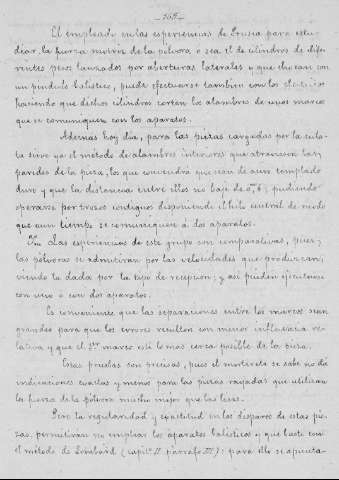 El empleado en las esperiencias de Prusia para estu-
diar la fuerza motriz de la pólvora o sea el de cilindros de dife-
rentes pesos lanzados por aberturas laterales y que chocan con
un pendulo balistico, puede efectuarse tambien con los
haciendo que dichos cilindros corten los alambres de unos marcos
que se comuniquen con los aparatos.
Ademas hoy dia, para las piezas cargadas por la cula-
ta sirve ya el metodo de alambres interiores que atraviesan las
paredes de la pieza, los que convendrá que sean de acero templado
duro y que la distancia entre ellos no baje de 0,m 6; pudiendo
operarse por trozos contiguos disponiendo el hilo central de modo
que aun tiempo se comuniquen á los aparatos.
Las esperiencias de este grupo son comparativas, pues
las pólvoras se admitiran por las velocidades que produzcan,
siendo la dada por la tipo de recepcion; y asi pueden efectuarse
con uno o con dos aparatos.
Es conveniente que las separaciones entre los marcos sean
grandes para que los errores resulten con menor influencia re-
lativa y que el 1er marco esté lo mas cerca posible de la pieza.
Estas pruebas son precisas, pues el morterete se sabe no dá
indicaciones exactas y menos para las piezas rayadas que utilizan
la fuerza de la pólvora mucho mejor que las lisas.
Pero la regularidad y exactitud en los disparos de estas pie-
zas, permitiran no emplear los aparatos balisticos y que baste con
el metodo de Lombard (capit.º II parrafo III) para ello se apunta-